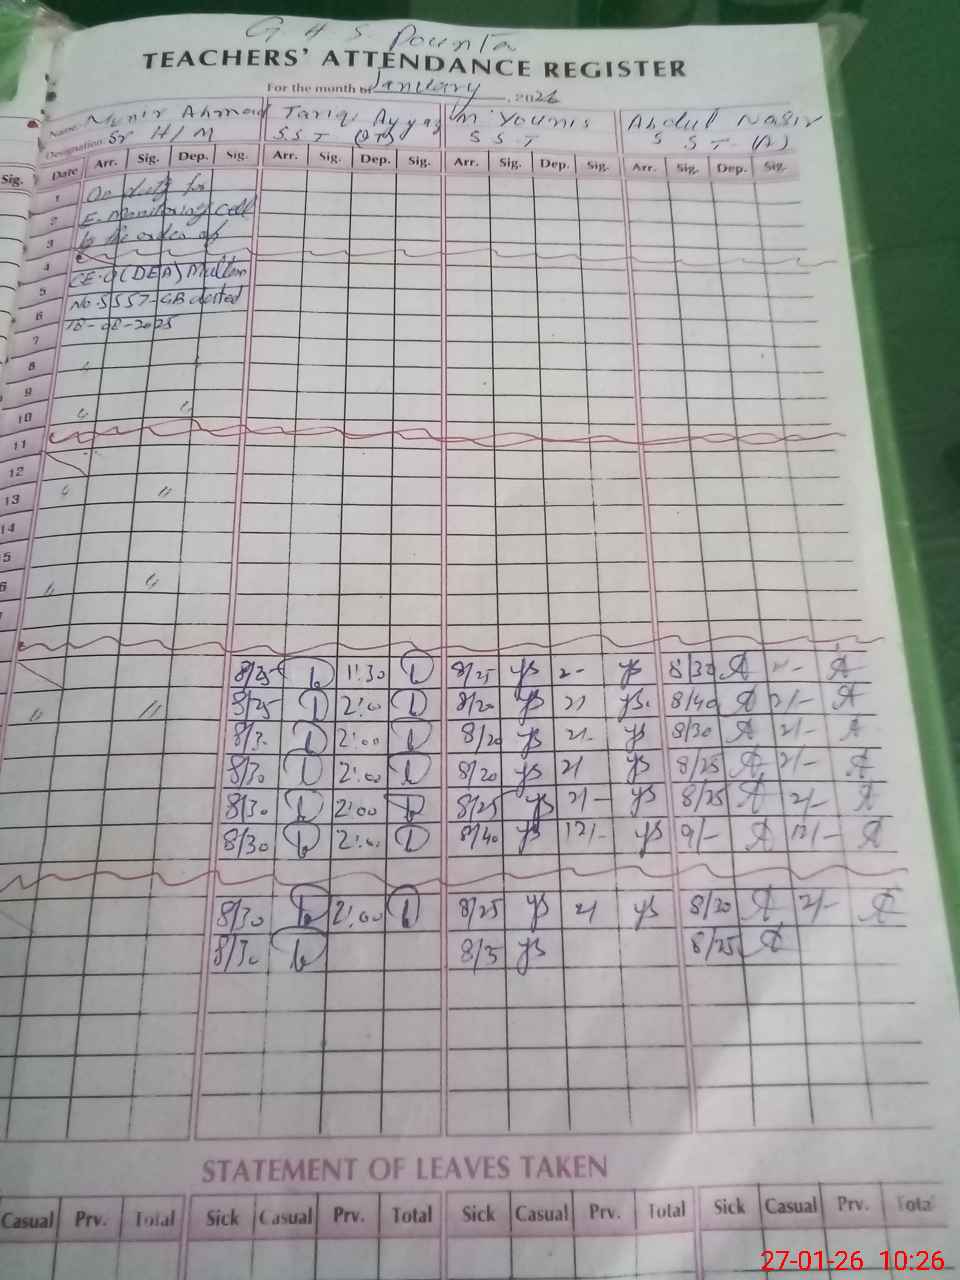 G H S Pounta
TEACHERS' ATTENDANCE REGISTER
For the month of January, 2026
Name Munir Ahmad Tariq Ayyaz M Younis Abdul Nasir
Designation Sr H/M S.S.T S S T S S T (A)
Sig. Date Arr. Sig. Dep. Sig. Arr. Sig. Dep. Sig. Arr. Sig. Dep. Sig. Arr. Sig. Dep. Sig.
1 On duty for
2 E. Monitoring Cell
3 to the order of
4
5 CEO (DEA) Multan
6 No. 5557-GB dated
7 18-08-2025
8
9
10
11
12
13
14
5
6
8/25 1:30 8/25 ys 2- ys 8/30 A A
8/25 2:00 8/20 ys 2/ ys. 8/40 A 2/- A
8/30 2:00 8/20 ys 2/- ys 8/30 A 2/- A
8/30 2:00 8/20 ys 2/ ys 8/25 A 2/- A
8/30 2:00 8/25 ys 2/- ys 8/25 A 2/- A
8/30 2:00 8/40 ys 12/- ys 9/- A 12/- A
8/30 2:00 8/25 ys 2/ ys 8/20 A 2/- A
8/30 ys 8/25 A
STATEMENT OF LEAVES TAKEN
Casual Prv. Total Sick Casual Prv. Total Sick Casual Prv. Total Sick Casual Prv. Tota
27-01-26 10:26